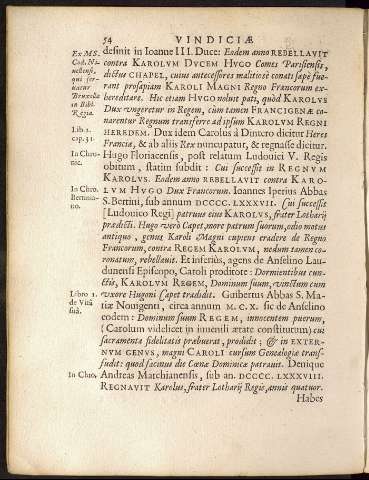 54 VINDICIÆ
Ex MS. Cod. Ni-
uellensi,
qui ser-
uatur
Bruxellæ
in Bibl.
Regia.
desinit in Ioanne III. Duce: Eodem anno REBELLAVIT
contra KAROLVM DVCEM HVGO Comes Parisiensis,
dictus CHAPEL, cuius antecessores malitiosè conati sæpè fue-
rant prosapiam KAROLI MAGNI Regno Francorum ex-
hereditare. Hic etiam HVGO noluit pati, quòd KAROLVS
Dux vngeretur in Regem, cùm tamen FRANCIGENÆ co-
narentur Regnum transferre ad ipsum KAROLVM REGNI
Lib. 2.
cap. 31.
HEREDEM. Dux idem Carolus à Dintero dicitur Heres
Franciæ, & ab aliis Rex nuncupatur, & regnasse dicitur.
In Chro-
nic.
Hugo Floriacensis, post relatum Ludouici V. Regis
obitum, statim subdit: Cui successit in REGNVM
KAROLVS. Eodem anno REBELLAVIT contra KARO-
In Chro.
Bertinia-
no.
LVM HVGO Dux Francorum. Ioannes Iperius Abbas
S. Bertini, sub annum DCCCC. LXXXVII. Cui successit
[Ludouico Regi] patruus eius KAROLVS, frater Lotharij
prædicti. Hugo verò Capet, more patrum suorum, odio motus
antiquo, genus Karoli Magni cupiens eradere de Regno
Francorum, contra REGEM KAROLVM, nedum tamen co-
ronatum, rebellauit. Et inferiùs, agens de Anselino Lau-
dunensi Episcopo, Caroli proditore: Dormientibus cun-
ctis, KAROLVM REGEM, Dominum suum, vinctum cum
Libro 1.
de Vitâ
suâ.
vxore Hugoni Capet tradidit. Guibertus Abbas S. Ma-
riæ Nouigenti, circa annum M.C.X. sic de Anselino
eodem: Dominum suum REGEM, innocentem puerum,
(Carolum videlicet in iuuenili ætate constitutum) cui
sacramenta fidelitatis præbuerat, prodidit; & in EXTER-
NVM GENVS, magni CAROLI cursum Genealogiæ trans-
fudit: quod facinus die Cœnæ Dominicæ patrauit. Denique
In Chro.
Andreas Marchianensis, sub an. DCCCC. LXXXVIII.
REGNAVIT Karolus, frater Lotharij Regis, annis quatuor.
Habes